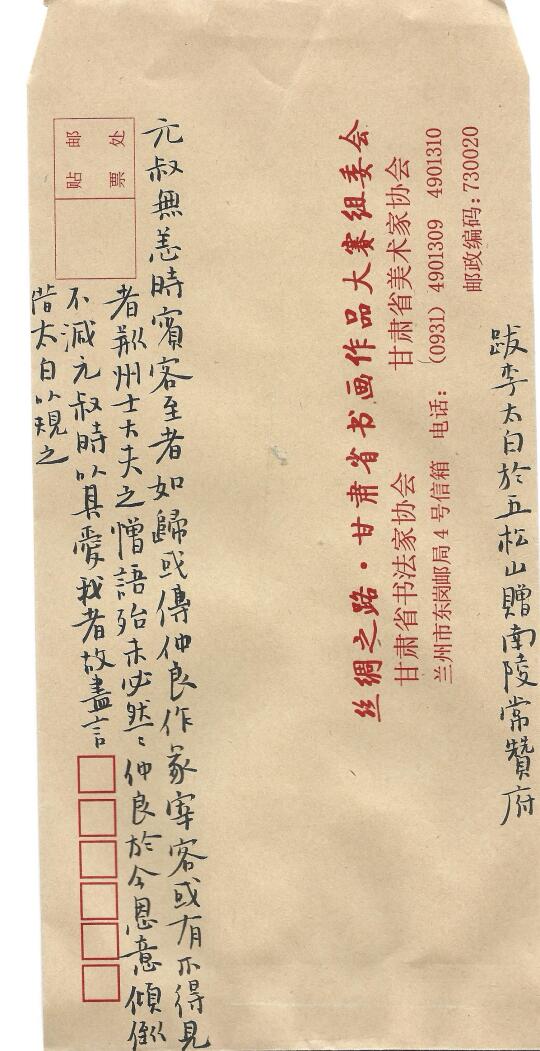 跋李太白於五松山贈南陵常贊府
邮政编码:730020
甘肃省书法家协会 甘肃省美术家协会
兰州市东岗邮局4号信箱 电话:(0931) 4901309 4901310
丝绸之路·甘肃省书画作品大赛组委会
元叔無恙時賓客至者如歸或傳仲良作冢宰客或有不得見
者刱州士大夫之憎語殆未必然〻仲良於今恩意傾倒
不減元叔時以其愛我者故盡言
借太白以規之
贴 邮
票 处